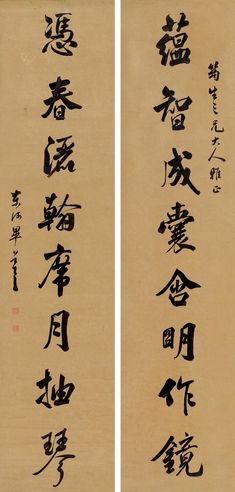 筠生三兄大人雅正
蘊智成囊含明作鏡
憑春翰席月抽琴
東河畢